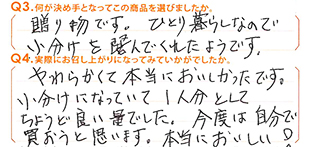 Q3.何が決め手となってこの商品を選びましたか。
贈り物です。ひとり暮らしなので
小分けを喜んでくれたようです。
Q4.実際にお召し上がりになってみていかがでしたか。
やわらかくて本当においしかったです。
小分けになっていて1人分として
ちょうど良い量でした。今度は自分で
買おうと思います。本当においしい!